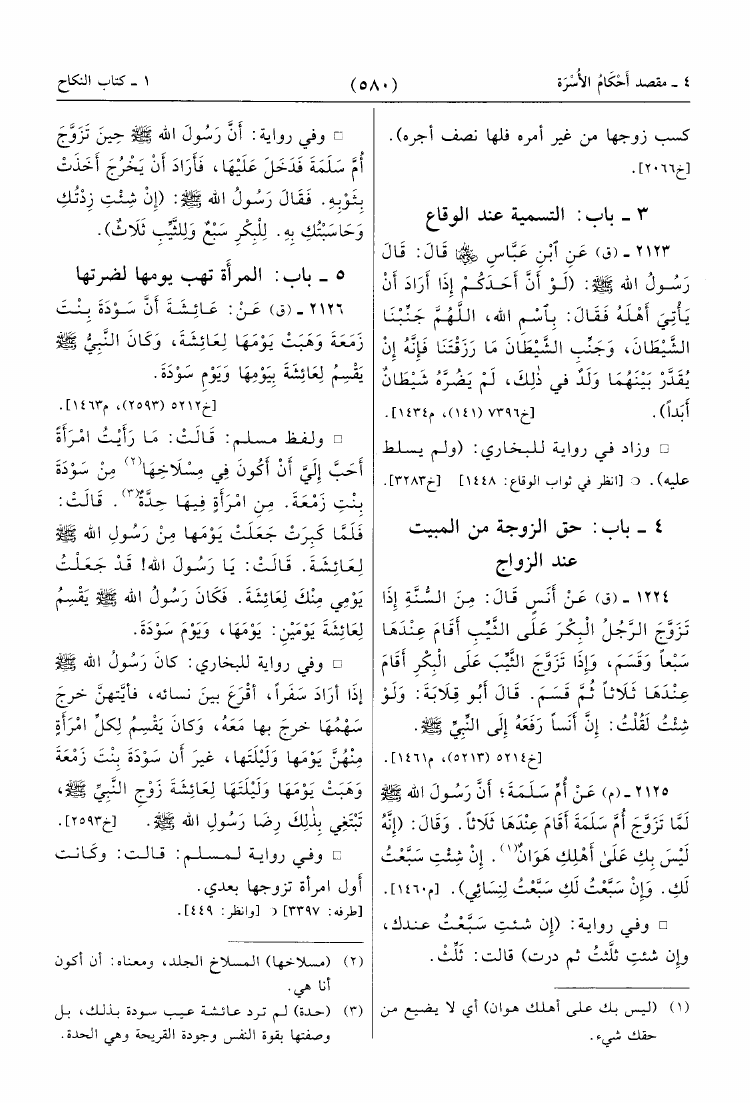 ٤ ـ مقصد أَحْكامُ الأُسْرَة
(٥٨٠)
١ ـ كتاب النكاح
كسب زوجها من غير أمره فلها نصف أجره).
[خ٢٠٦٦].
٣ ـ باب: التسمية عند الوقاع
٢١٢٣ ـ (ق) عَنِ ٱبْنِ عَبَّاسٍ ﵄ قَالَ: قَالَ
رَسُولُ الله ﷺ: (لَوْ أَنَّ أَحَدَكُمْ إِذَا أَرَادَ أَنْ
يَأْتِيَ أَهْلَهُ فَقَالَ: بِٱسْمِ الله، اللَّهُمَّ جَنِّبْنَا
الشَّيْطَانَ، وَجَنِّبِ الشَّيْطَانَ مَا رَزَقْتَنَا فَإِنَّهُ إِنْ
يُقَدَّرْ بَيْنَهُمَا وَلَدٌ في ذٰلِكَ، لَمْ يَضُرَّهُ شَيْطَانٌ
أَبَداً). [خ٧٣٩٦ (١٤١)، م١٤٣٤].
□ وزاد في رواية للبخاري: (ولم يسلط
عليه). ○ [انظر في ثواب الوقاع: ١٤٤٨] [خ٣٢٨٣].
٤ ـ باب: حق الزوجة من المبيت
عند الزواج
١٢٢٤ ـ (ق) عَنْ أَنَسٍ قَالَ: مِنَ السُّنَّةِ إِذَا
تَزَوَّجَ الرَّجُلُ الْبِكْرَ عَلَى الثَّيِّبِ أَقَامَ عِنْدَهَا
سَبْعاً وَقَسَمَ، وَإِذَا تَزَوَّجَ الثَّيِّبَ عَلَى الْبِكْرِ أَقَامَ
عِنْدَهَا ثَلَاثاً ثُمَّ قَسَمَ. قَالَ أَبُو قِلَابَةَ: وَلَوْ
شِئْتُ لَقُلْتُ: إِنَّ أَنَساً رَفَعَهُ إِلَى النَّبِيِّ ﷺ.
[خ٥٢١٤ (٥٢١٣)، م١٤٦١].
٢١٢٥ ـ (م) عَنْ أُمِّ سَلَمَةَ؛ أَنَّ رَسُولَ الله ﷺ
لَمَّا تَزَوَّجَ أُمَّ سَلَمَةَ أَقَامَ عِنْدَهَا ثَلَاثاً. وَقَالَ: (إِنَّهُ
لَيْسَ بِكِ عَلَىٰ أَهْلِكِ هَوَانٌ(١). إِنْ شِئْتِ سَبَّعْتُ
لَكِ. وَإِنْ سَبَّعْتُ لَكِ سَبَّعْتُ لِنِسَائِي). [م١٤٦٠].
□ وفي رواية: (إن شئتِ سَبَّعْتُ عندك،
وإن شئتِ ثلَّثتُ ثم درت) قالت: ثَلِّثْ.
(١) (ليس بك على أهلك هوان) أي لا يضيع من
حقك شيء.
□ وفي رواية: أَنَّ رَسُولَ الله ﷺ حِينَ تَزَوَّجَ
أُمَّ سَلَمَةَ فَدَخَلَ عَلَيْهَا، فَأَرَادَ أَنْ يَخْرُجَ أَخَذَتْ
بِثَوْبِهِ. فَقَالَ رَسُولُ الله ﷺ: (إِنْ شِئْتِ زِدْتُكِ
وَحَاسَبْتُكِ بِهِ. لِلْبِكْرِ سَبْعٌ وَلِلثَّيِّبِ ثَلَاثٌ).
٥ ـ باب: المرأة تهب يومها لضرتها
٢١٢٦ ـ (ق) عَنْ: عَائِشَةَ أَنَّ سَوْدَةَ بِنْتَ
زَمْعَةَ وَهَبَتْ يَوْمَهَا لِعَائِشَةَ، وَكَانَ النَّبِيُّ ﷺ
يَقْسِمُ لِعَائِشَةَ بِيَوْمِهَا وَيَوْمِ سَوْدَةَ.
[خ٥٢١٢ (٢٥٩٣)، م١٤٦٣].
□ ولفظ مسلم: قَالَتْ: مَا رَأَيْتُ امْرَأَةً
أَحَبَّ إِلَيَّ أَنْ أَكُونَ فِي مِسْلَاخِهَا(٢) مِنْ سَوْدَةَ
بِنْتِ زَمْعَةَ. مِنِ امْرَأَةٍ فِيهَا حِدَّةٌ(٣). قَالَتْ:
فَلَمَّا كَبِرَتْ جَعَلَتْ يَوْمَهَا مِنْ رَسُولِ الله ﷺ
لِعَائِشَةَ. قَالَتْ: يَا رَسُولَ الله! قَدْ جَعَلْتُ
يَوْمِي مِنْكَ لِعَائِشَةَ. فَكَانَ رَسُولُ الله ﷺ يَقْسِمُ
لِعَائِشَةَ يَوْمَيْنِ: يَوْمَهَا، وَيَوْمَ سَوْدَةَ.
□ وفي رواية للبخاري: كانَ رَسُولُ الله ﷺ
إذَا أرَادَ سَفَراً، أقْرَعَ بينَ نسائه، فأيَّتهنَّ خرجَ
سَهْمُهَا خرجَ بها مَعَهُ، وَكانَ يَقْسِمُ لِكلِّ امْرَأَةٍ
مِنْهُنَّ يَوْمَهَا وَلَيْلَتَها، غيرَ أن سَوْدَةَ بِنْتَ زَمْعَةَ
وَهَبَتْ يَوْمَهَا وَلَيْلَتَهَا لِعَائِشَةَ زَوْجِ النَّبِيِّ ﷺ،
تَبْتَغِي بِذٰلِكَ رِضَا رَسُولِ الله ﷺ. [خ٢٥٩٣].
□ وفي رواية لمسلم: قالت: وكانت
أول امرأة تزوجها بعدي.
[طرفه: ٣٣٩٧] ○ [وانظر: ٤٤٩].
(٢) (مسلاخها) المسلاخ الجلد، ومعناه: أن أكون
أنا هي.
(٣) (حدة) لم ترد عائشة عيب سودة بذلك، بل
وصفتها بقوة النفس وجودة القريحة وهي الحدة.